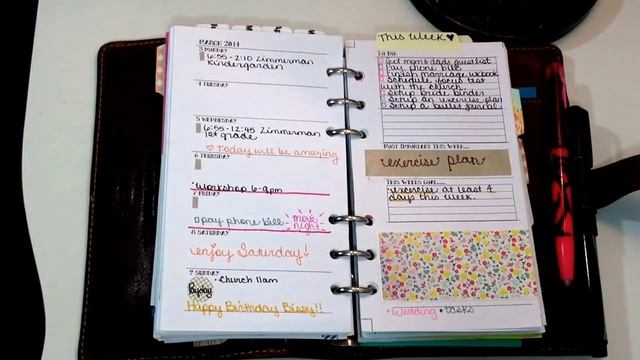 MARCH 2014
3 MONDAY
6:55-2:10 Zimmerman
Kindergarden
4 TUESDAY
5 WEDNESDAY
6:55-12:45 Zimmerman
1st grade
Today will be amazing
6 THURSDAY
Workshop 6-9pm
7 FRIDAY
pay phone bill
movie
night
8 SATURDAY
enjoy Saturday!
9 SUNDAY
Church 11am
Payday
Happy Birthday Bissy!!
This Week
TO DO
Get mom & dads guestlist
Pay phone bill
Finish marriage wkbook
Schedule focus test
with the church
Setup bride binder
Setup an exercise plan
Setup a bullet journal
MOST IMPORTANT THIS WEEK
exercise plan
THIS WEEKS GOAL
exercise at least 4
days this week.
Wedding • tasks